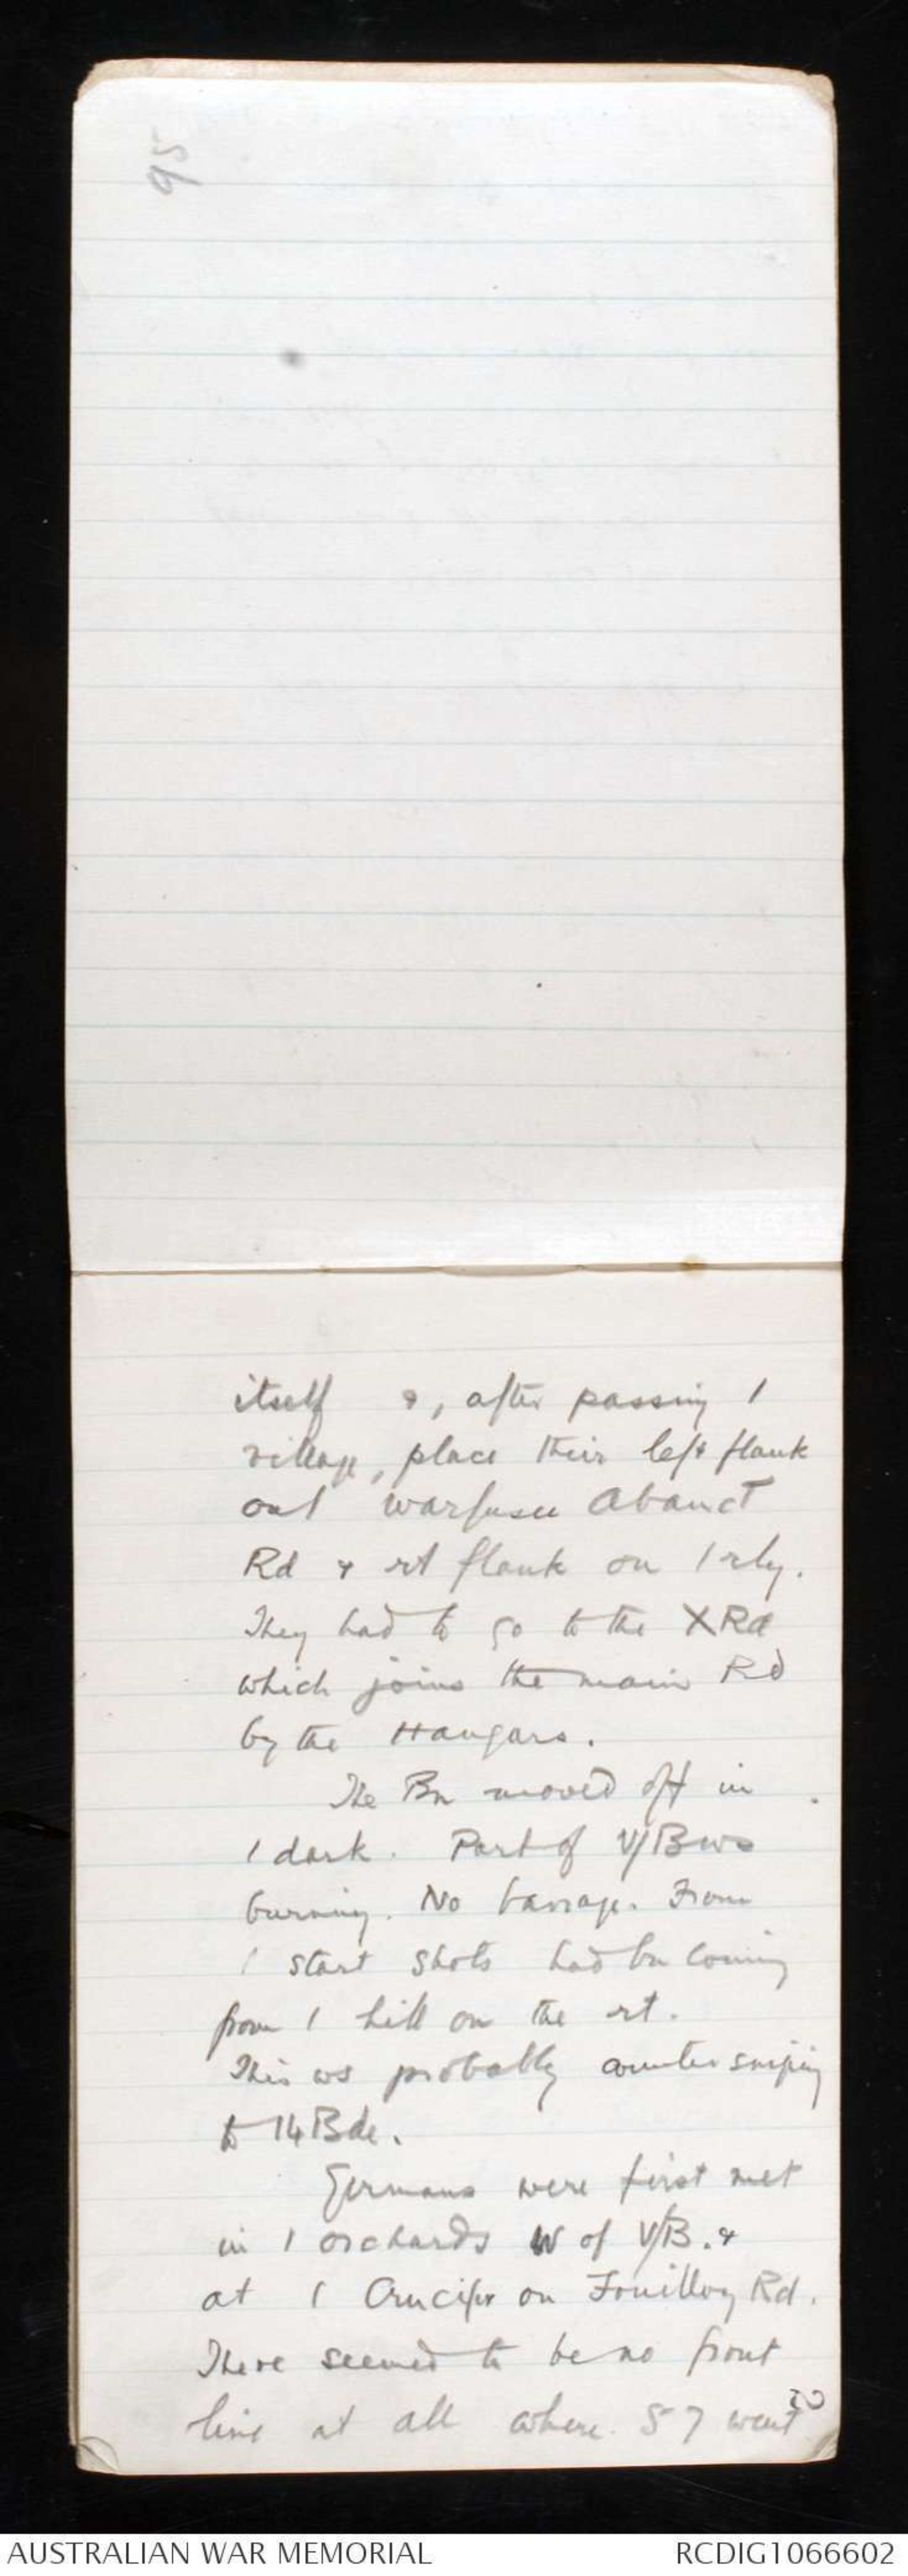 95
itself &, after passing /
village, place their left flank
on / Warfusee Abanct
Rd & rt flank on / rly.
They had to go to the X Rd
which joins the main Rd
by the Hangars.
The Bn moved off in
/ dark. Part of V/B ws
burning. No barrage. From
/ start shots had bn coming
from / hill on the rt.
This ws probably counter sniping
to 14 Bde.
Germans were first met
in / orchards W of V/B. &
at / Crucifix on Fouilloy Rd.
There seemed to be no front
line at all where 57 went
AUSTRALIAN WAR MEMORIAL
RCDIG1066602